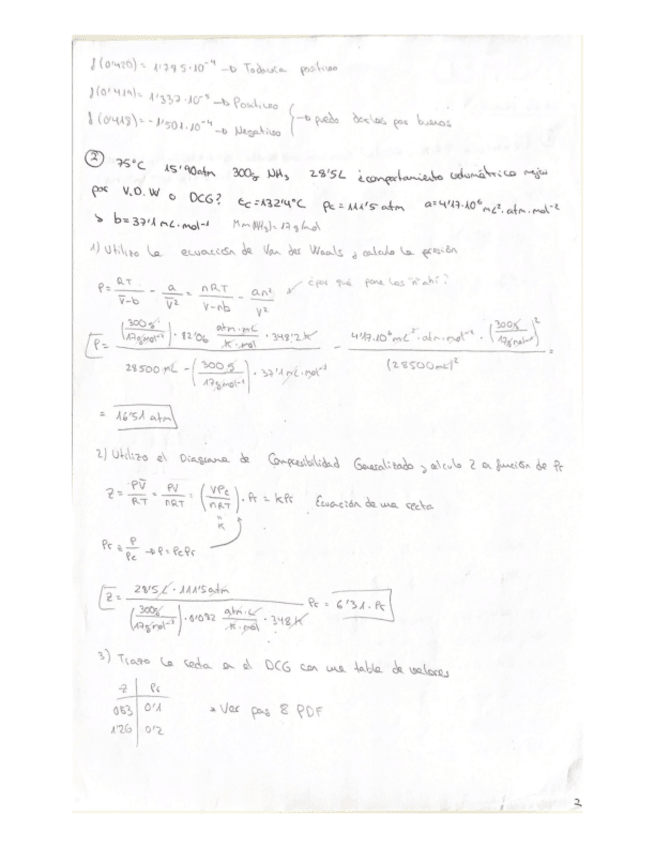 f(0'420) = 1'295·10⁻⁴ → Todavía positivo
f(0'419) = 1'337·10⁻⁵ → Positivo
f(0'418) = -1'501·10⁻⁴ → Negativo → puedo darlas por buenos
② 75°C 15'90atm 300g NH₃ 28'5L ¿comportamiento volumétrico mejor
por V.D.W o DCG? tc=132'4°C pc=111'5 atm a=4'17·10⁶ mL²·atm·mol⁻²
b=37'1 mL·mol⁻¹ Mm(NH₃)=17g/mol
1) Utilizo la ecuación de Van der Waals y calculo la presión
P = RT/(V̄-b) - a/V̄² = nRT/(V-nb) - an²/V² ¿por qué pone las "n" ahí?
P = ((300g/17g·mol⁻¹)·82'06 atm·mL/K·mol·348'2K)/(28500mL - (300g/17g·mol⁻¹)·37'1 mL·mol⁻¹) - (4'17·10⁶ mL²·atm·mol⁻²·(300g/17g·mol⁻¹)²)/(28500mL)² =
= 16'51 atm
2) Utilizo el Diagrama de Compresibilidad Generalizado y calculo Z en función de Pr
Z = PV̄/RT = PV/nRT = (VPc/nRT)·Pr = kPr Ecuación de una recta
K
Pr = P/Pc → P = PcPr
Z = (28'5 L·111'5atm)/((300g/17g·mol⁻¹)·0'082 atm·L/K·mol·348K) Pr = 6'31·Pr
3) Trazo la recta en el DCG con una tabla de valores
Z | Pr
063 | 0'1 * Ver pag 8 PDF
126 | 0'2
2